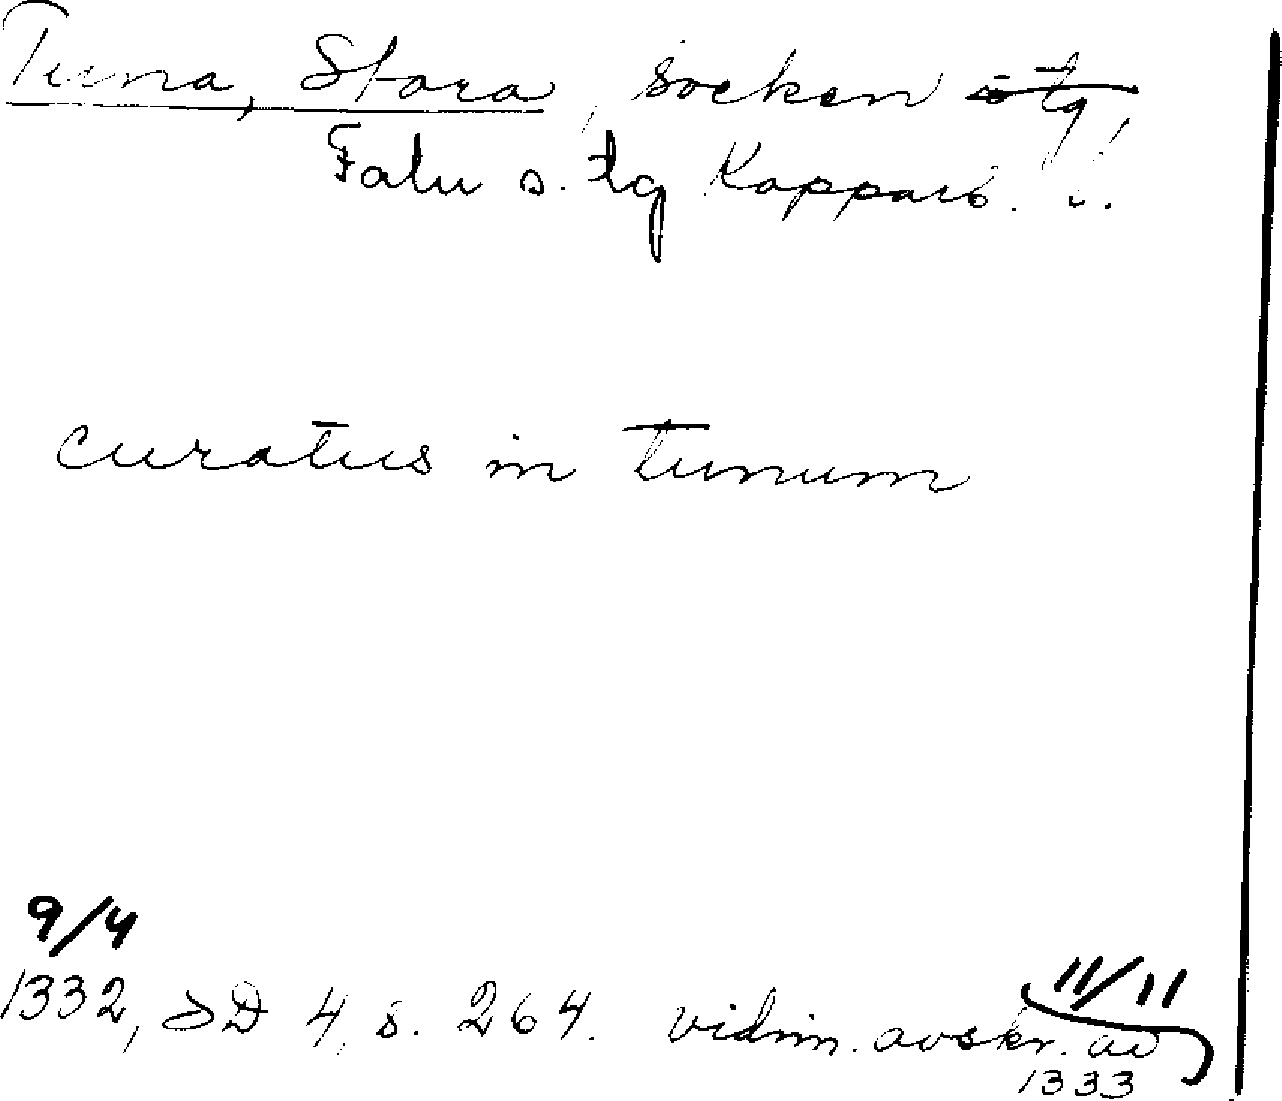 Tuna, Stora, socken o tg!
Falu s. tg Kopparb. l.
curatus in Tunum
9/4
11/11
1332, SD 4, s. 264. vidim. avskr. av
1333